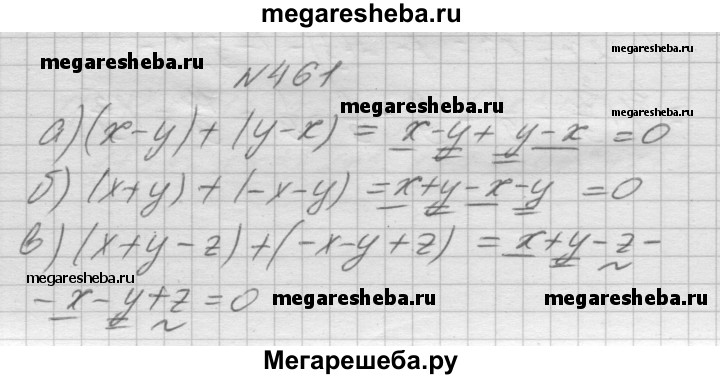 megaresheba.ru
megaresheba.ru
megaresheba.ru
N461
megaresheba.ru
megaresheba.ru
а) (x-y) + (y-x) = x-y+ y-x =0
б) (x+y) + (-x-y) =x+y-x-y =0
в) (x+y-z)+(-x-y+z) = x+y-z-
megaresheba.ru
-x-y+z=0
megaresheba.ru
megaresheba.ru
Мегарешеба.ру